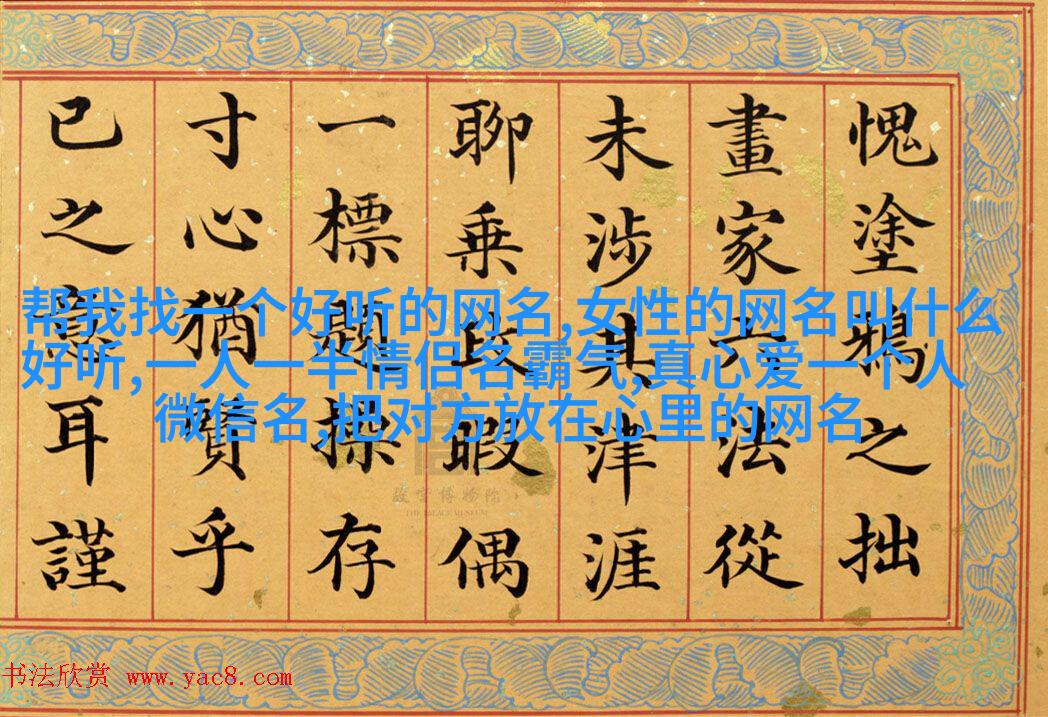 愧塗鴉之拙
畫家六法從
未涉其津涯
聊乘政暇偶
一標題操存
寸心猶乎
已之意耳謹
帮我找一个好听的网名,女性的网名叫什么
好听,一人一半情侣名霸气,真心爱一个人
微信名,把对方放在心里的网名
故宫博物院
THE PALACE MUSEUM
书法欣赏 www.yac8.com